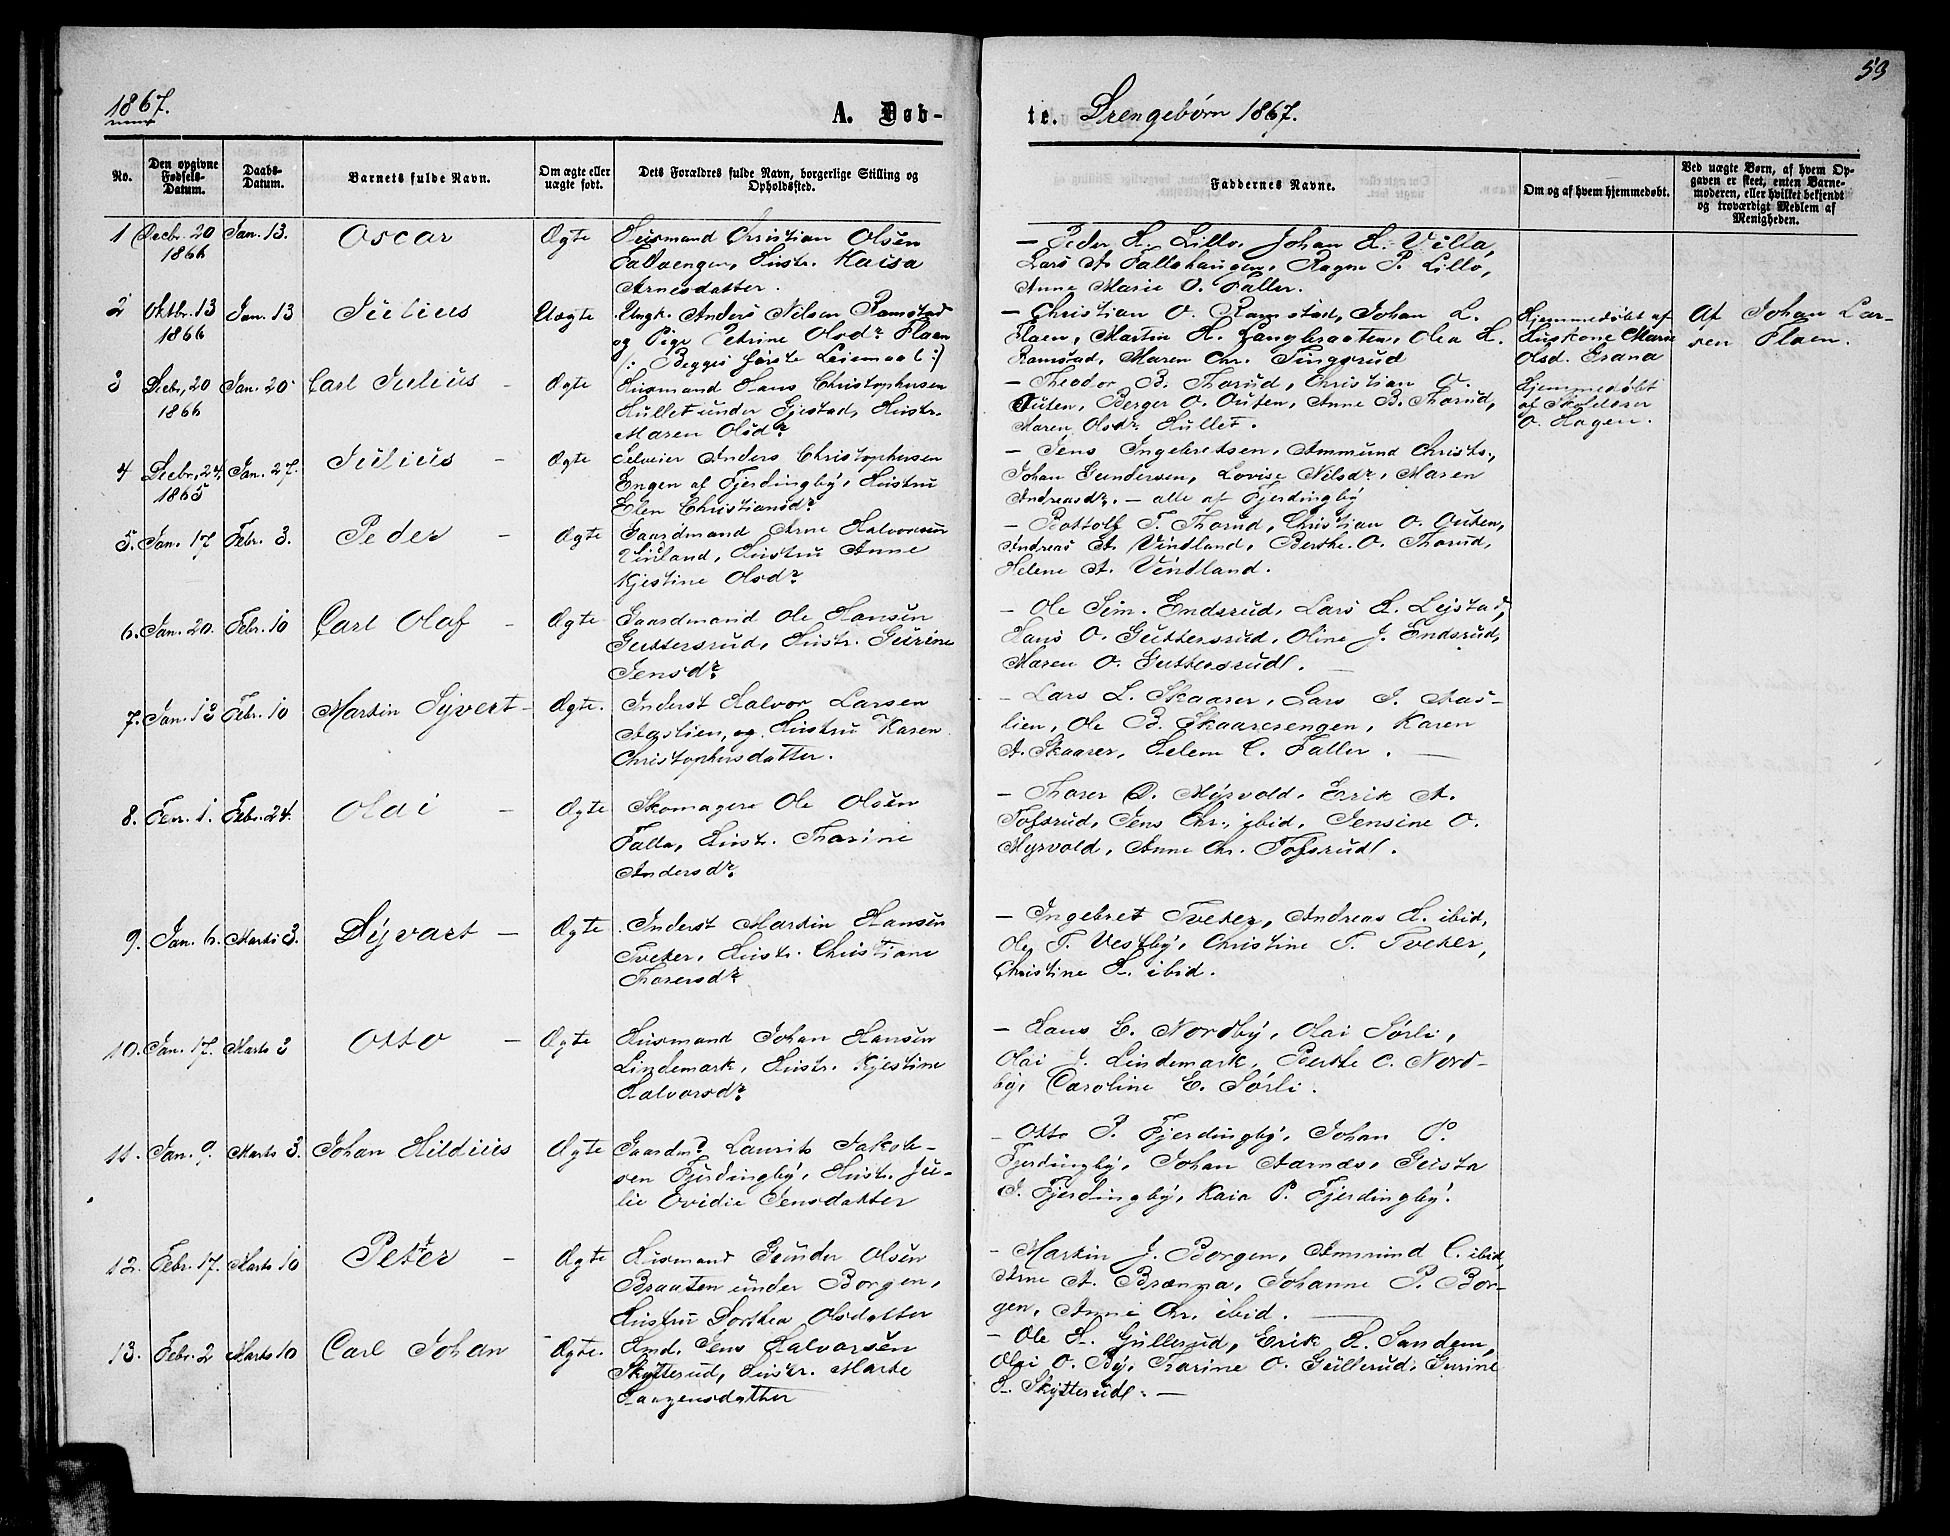 53
1867.
A. Døb-
te. Drengebørn 1867.
No.
Den opgivne Fødsels-Datum.
Daabs-Datum.
Barnets fulde Navn.
Om ægte eller uægte født.
Dets Forældres fulde Navn, borgerlige Stilling og Opholdssted.
Faddernes Navne.
Om og af hvem hjemmedøbt.
Ved uægte Børn, af hvem Opgaven er skeet, enten Barnemoderen, eller hvilket bekjendt og troværdigt Medlem af Menigheden.
1 Decbr. 20 1866 Jan. 13. Oscar Ægte
Husmand Christian Olsen
Fallaengen, Hustr. Kaisa
Arnesdatter.
– Peder H. Lillo, Johan H. Villa,
Lars A. Fallahaugen, Ragne P. Lillo,
Anne Marie O. Faller.
2 Oktbr. 13 1866 Jan. 13 Julius Uægte
Ungk. Anders Nilsen Ramstad
og Pige Petrine Olsdr Flaen
/: Begges første Leiemaal :/
– Christian O. Ramstad, Johan L.
Flaen, Martin H. Langbraaten, Olea H.
Ramstad, Maren Chr. Tingsrud
Hjemmedøbt af
Huskone Maria
Olsd. Grana
Af Johan Lar-
sen Flaen.
3 Decbr. 20 1866 Jan. 20 Carl Julius – Ægte
Husmand Hans Christophersen
Hullet under Gjestad, Hustr.
Maren Olsdr
– Theodor B. Thorud, Christian O.
Outen, Berger O. Outen, Anne B. Thorud,
Maren Olsdr Hullet.
Hjemmedøbt
af Skolelærer
O. Hagen.
4 Decbr. 24, 1865 Jan. 27. Julius – Ægte
Selveier Anders Christophersen
Engen af Fjerdingby, Hustru
Elen Christiansdr
– Jens Ingebretsen, Ammund Christs.,
Johan Gundersen, Lovise Nilsdr, Maren
Andreasdr, – alle af Fjerdingby
5. Jan. 17 Febr. 3. Peder – Ægte
Gaardmand Arne Halvorsen
Vinland, Hustru Anne
Kjestine Olsdr
– Rottolf T. Thorud, Christian O. Outen,
Andreas A. Vindland, Berthe O. Thorud,
Helene A. Vindland.
6. Jan. 20. Febr. 10 Carl Olaf – Ægte
Gaardmand Ole Hansen
Guttersrud, Hustr. Gurine
Jensdr
– Ole Sim. Endsrud, Lars H. Lejstad,
Hans O. Guttersrud, Oline J. Endsrud,
Maren O. Guttersrud. –
7. Jan. 13 Febr. 10 Martin Syvert – Ægte.
Inderst Halvor Larsen
Aaslien, og Hustru Karen
Christophersdatter.
– Lars L. Skaarer, Lars J. Aas-
lien, Ole B. Skaaresengen, Karen
A. Skaarer, Helene C. Faller. –
8. Febr. 1. Febr. 24. Olai – Ægte
Skomager Ole Olsen
Falla, Hustr. Thorine
Andersdr
– Thorer O. Myrvold, Erik A.
Tofsrud, Jens Chr. ibid, Jensine O.
Myrvold, Anne Chr. Tofsrud.
9. Jan. 6. Marts 3. Syvart – Ægte
Inderst Martin Hansen
Tveter, Hustr. Christiane
Thorersdr
– Ingebret Tveter, Andreas H. ibid,
Ole T. Vestby, Christine T. Tveter,
Christine H. ibid.
10. Jan. 17. Marts 3 Otto – Ægte
Husmand Johan Hansen
Lindemark, Hustr. Kjestine
Halvorsdr
– Hans E. Nordby, Olai Sørli,
Olai J. Lindemark, Berthe C. Nord-
by, Caroline E. Sørli.
11. Jan. 9. Marts 3. Johan Hildius Ægte
Gaardmd Laurits Jakob-
sen Fjerdingby, Hustr. Ju-
lie Ovidie Jensdatter
– Otto P. Fjerdingby, Johan P.
Fjerdingby, Johan Aarnæs, Gusta
J. Fjerdingby, Kaia P. Fjerdingby.
12. Febr. 17. Marts 10 Peter – Ægte
Husmand Gunder Olsen
Braaten under Borgen,
Hustru Dorthea Olsdatter
– Martin J. Borgen, Ammund C. ibid,
Arne A. Brænna, Johanne P. Bor-
gen, Anne Chr. ibid. –
13. Febr. 2 Marts 10 Carl Johan – Ægte.
Hmd. Jens Halvorsen
Skytterud, Hustr. Marte
Haagensdatter
– Ole H. Gullerud, Erik H. Sandem,
Olai O. By, Karine O. Gullerud, Gurine
H. Skytterud. –